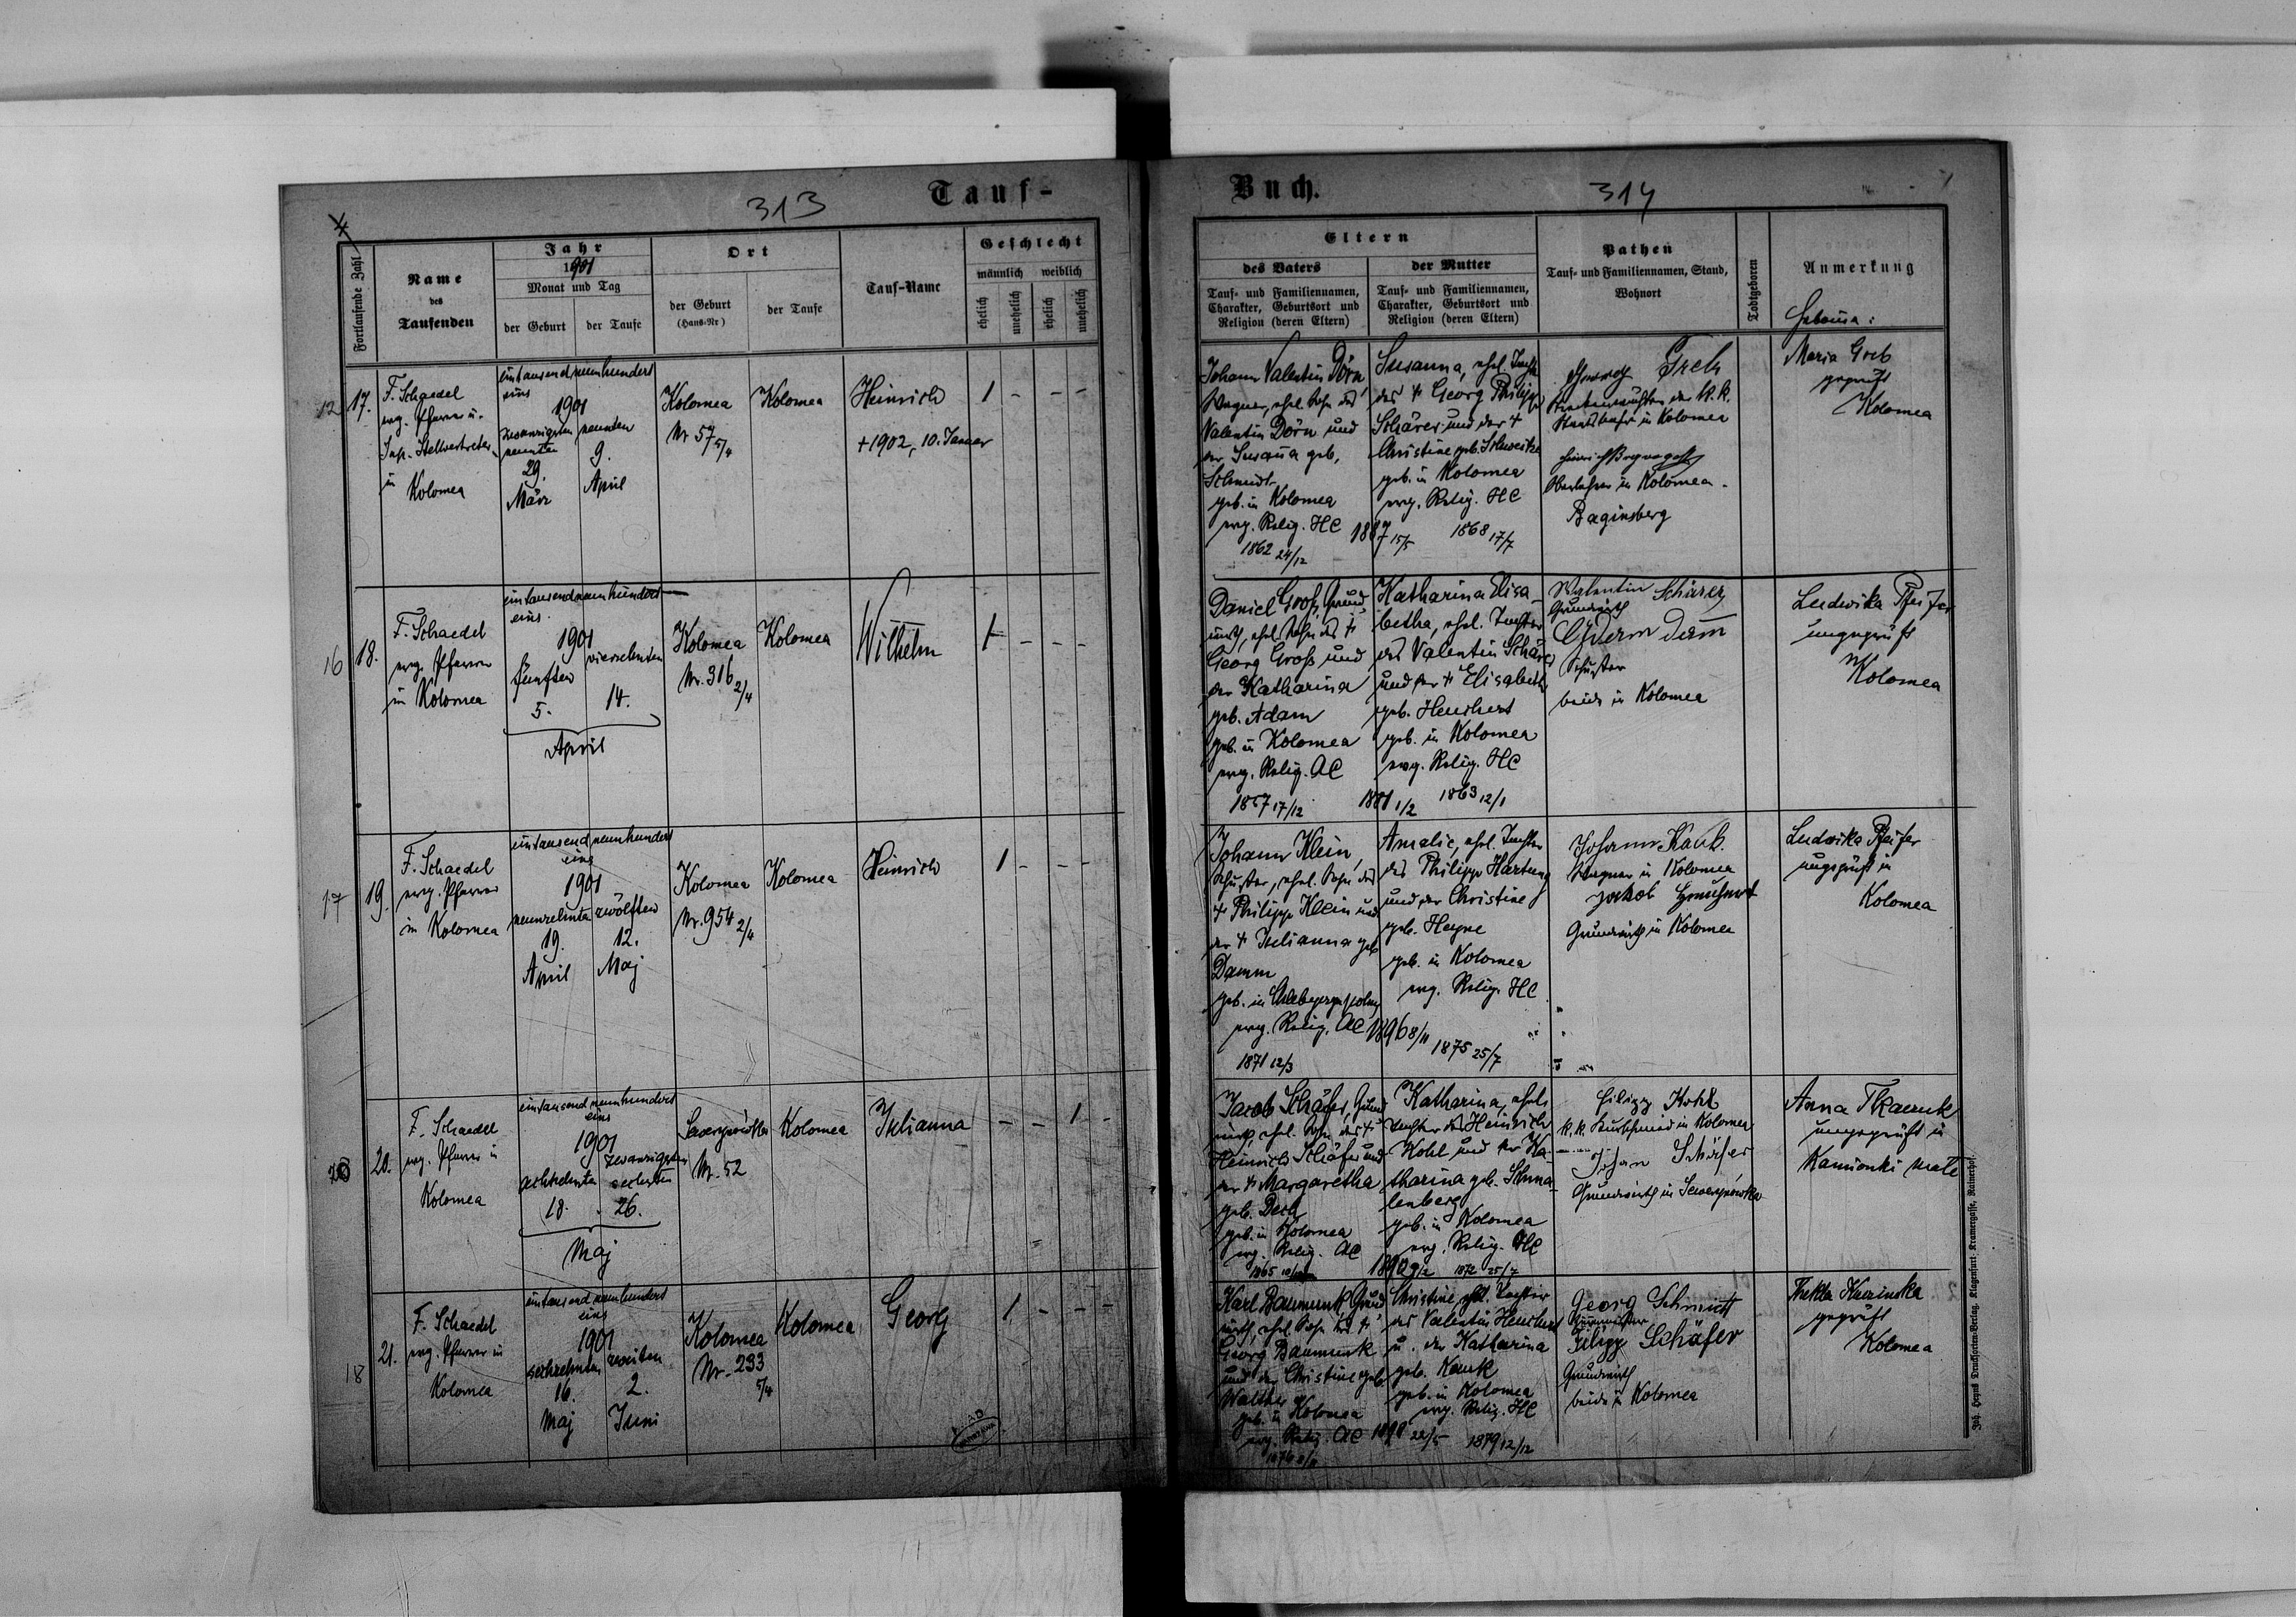 313
Tauf-
Fortlaufende Zahl
Name
des
Taufenden
Jahr
1901
Monat und Tag
der Geburt
der Taufe
Ort
der Geburt
(Haus-Nr)
der Taufe
Tauf-Name
Geschlecht
männlich
weiblich
ehelich
unehelich
ehelich
unehelich
12
17.
F. Schaedel
evg. Pfarrer u.
Sup. Stellvertreter
in
Kolomea
eintausendneunhundert
eins
1901
zwanzigsten
neunten
29.
März
neunten
9.
April
Kolomea
Nr 57 5/4
Kolomea
Heinrich
+1902, 10. Januar
1 - - -
16
18.
F. Schaedel
evg. Pfarrer
in Kolomea
eintausendneunhundert
eins.
1901
fünften
5.
vierzehnten
14.
April
Kolomea
Nr. 316 2/4
Kolomea
Wilhelm
1 - - -
17
19.
F. Schaedel
evg. Pfarrer
in Kolomea
eintausendneunhundert
eins
1901
neunzehnten
19.
April
zwölften
12.
Maj
Kolomea
Nr. 954 2/4
Kolomea
Heinrich
1 - - -
20.
F. Schaedel
evg. Pfarrer in
Kolomea
eintausendneunhundert
eins
1901
achtzehnten
18.
zwanzigsten
sechsten
26.
Maj
Sewerynówka
Nr. 52
Kolomea
Julianna
- - 1 -
18
21.
F. Schaedel
evg. Pfarrer in
Kolomea
eintausendneunhundert
eins
1901
sechzehnten
16.
Maj
zweiten
2.
Juni
Kolomea
Nr. 233
5/4
Kolomea
Georg
1 - - -
Buch.
314
Eltern
des Vaters
Tauf- und Familiennamen,
Charakter, Geburtsort und
Religion (deren Eltern)
der Mutter
Tauf- und Familiennamen,
Charakter, Geburtsort und
Religion (deren Eltern)
Pathen
Tauf- und Familiennamen, Stand,
Wohnort
Todtgeboren
Anmerkung
Hebama:
Johann Valentin Dörn
Wagner, ehel. Sohn des
Valentin Dörn und
der Susanna geb.
Schmidt
geb. in Kolomea
evg. Relig. HC
1862 24/12
1887 15/5
Susanna, ehel. Tochter
des + Georg Philipp
Schärer und der +
Christine geb.
geb. in Kolomea
evg. Relig. HC
1868 17/7
der k. k.
in Kolomea
Oberlehrer in Kolomea-
Baginsberg
Maria Greb
geprüft
Kolomea
Daniel Groß, Grund
wirth, ehel. Sohn des +
Georg Groß und
der Katharina
geb. Adam
geb. in Kolomea
evg. Relig. AC
1857 17/12
1881 1/2
Katharina Elisa
betha, ehel. Tochter
des Valentin Schärer
und der + Elisabeth
geb. Heuchert
geb. in Kolomea
evg. Relig. HC
1863 12/1
Valentin Schärer
Grundwirth
Schuster
beide in Kolomea
Ludwika Pfeifer
ungeprüft
Kolomea
Johann Klein,
Schuster, ehel. Sohn des
+ Philipp Klein und
der + Julianna geb.
Damm
geb. in
evg. Relig. AC
1871 12/3
1896 8/11
Amalie, ehel. Tochter
des Philipp Hartung
und der Christine
geb. Heyne
geb. in Kolomea
evg. Relig. HC
1875 25/7
Johann Kauk.
Wagner in Kolomea
Jakob Heuchert
Grundwirth in Kolomea
Ludwika Pfeifer
ungeprüft in
Kolomea
Jacob Schäfer, Grund
wirth, ehel. Sohn des +
Heinrich Schäfer und
der + Margaretha
geb. Desch
geb. in Kolomea
evg. Relig. AC
Katharina, ehel.
Tochter des Heinrich
Kohl und der Ka-
tharina geb. Schma-
lenberg
geb. in Kolomea
evg. Relig. HC
1872 25/7
Filipp Kohl
k. k. Kurschmied in Kolomea
Johan Schäfer
Grundwirth in Sewerynówka
Anna Tkaczuk
ungeprüft in
Kamionki małe
Karl Baumunk, Grund
wirth, ehel. Sohn des +
Georg Baumunk
und der Christine geb.
Walther
geb. in Kolomea
evg. Relig. AC
1898 22/5
Christine, ehel. Tochter
des Valentin Heuchert
u. der Katharina
geb. Kauk
geb. in Kolomea
evg. Relig. HC
1879 12/12
Georg Schmidt
Filipp Schäfer
Grundwirth
beide in Kolomea
Thekla Kuzinska
geprüft
Kolomea
Joh. Heyns Drucksorten-Verlag, Klagenfurt, Kramergasse, Rainerhof.